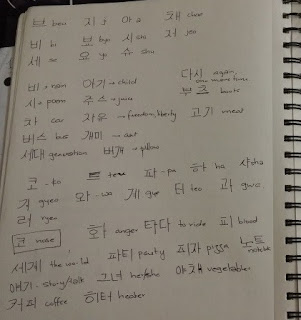 브 beu 지 j 아 a 채 chae
비 bi 보 byo 시 shi 저 jeo
세 se 요 yo 슈 shu
비 - rain 아기 - child 다시 again, one more time
시 - poem 주스 - juice 부츠 boots
차 car 자유 - freedom, liberty 고기 meat
버스 bus 개미 - ant
세대 generation 베개 - pillow
코 - ko 트 teu 파 - pa 하 ha 샤 sha
와 - wa 게 gye 터 teo 과 gwa
러
코 nose 화 anger 타다 to ride 피 blood
세계 the world 파티 party 피자 pizza 노트 notebook
얘기 - story/talk 그녀 her/she 야채 vegetables
커피 coffee 히터 heater